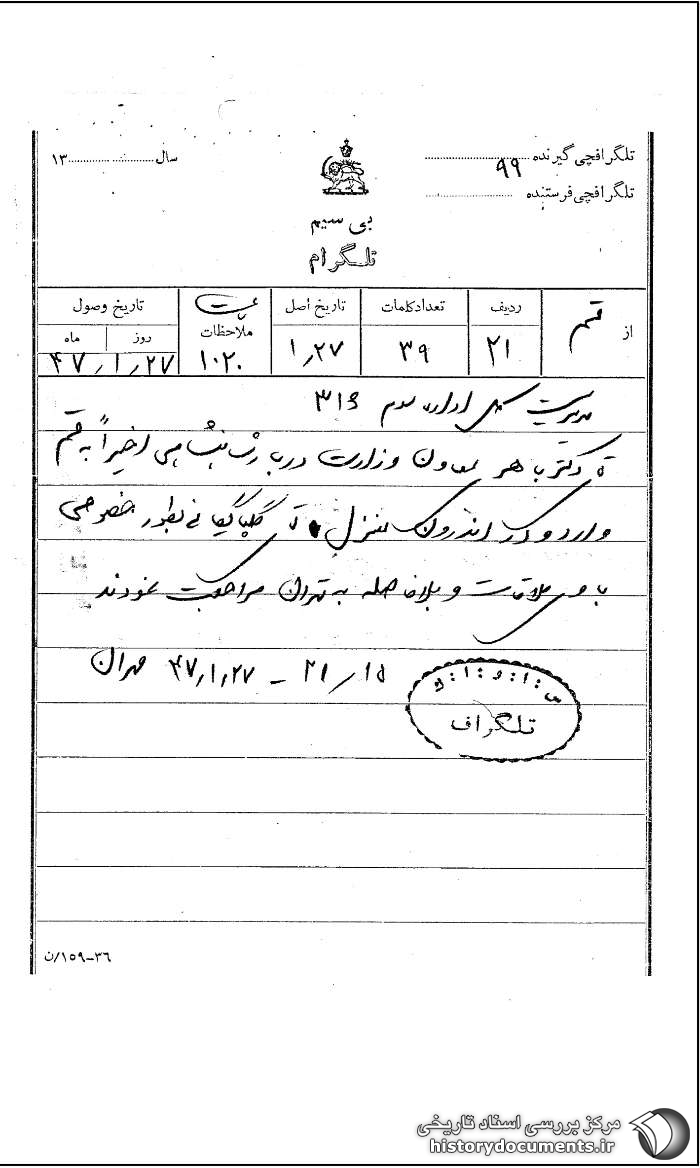 تلگرافچی گیرنده ........ ۹۹
سال ........ ۱۳
تلگرافچی فرستنده ........
بی سیم
تلگرام
از قم
ردیف ۲۱
تعداد کلمات ۳۹
تاریخ اصل ۱٫۲۷
ملاحظات ۱۰۲۰
تاریخ وصول
روز ماه
۴۷٫۱٫۲۷
مدیریت کل اداره سوم ۳۱۶
دکتر باهر معاون وزارت دربار شاهنشاهی اخیراً به قم
وارد و در اندرون منزل گلپایگانی بطور خصوصی
با وی ملاقات و بلافاصله به تهران مراجعت نمودند
۲۱/۱۵ - ۴۷٫۱٫۲۷ مهران
س.ا.و.ا.ک
تلگراف
۳۶-۱۵۹/ن
مرکز بررسی اسناد تاریخی
historydocuments.ir